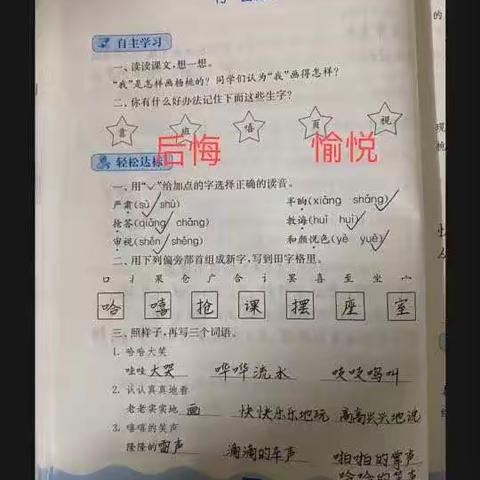 自主学习
一、读读课文,想一想。
“我”是怎样画杨桃的?同学们认为“我”画得怎样?
二、你有什么好办法记住下面这些生字?
班 嘻 页 视
后悔 愉悦
轻松达标
一、用“✓”给加点的字选择正确的读音。
严肃(sù shù) 半晌(xiǎng shǎng)
抢答(qiǎng chǎng) 教诲(huǐ huì)
审视(shěn shěng) 和颜悦色(yè yuè)
二、用下列偏旁部首组成新字,写到田字格里。
口 扌 果 仓 广 合 讠 罢 喜 至 坐 宀
哈 嘻 抢 课 摆 座 室
三、照样子,再写三个词语。
1. 哈哈大笑
哇哇大哭 哗哗流水 吱吱鸣叫
2. 认认真真地看
老老实实地画 快快乐乐地玩 高高兴兴地说
3. 嘻嘻的笑声
隆隆的雷声 滴滴的车声 啪啪的掌声
哈哈的笑声